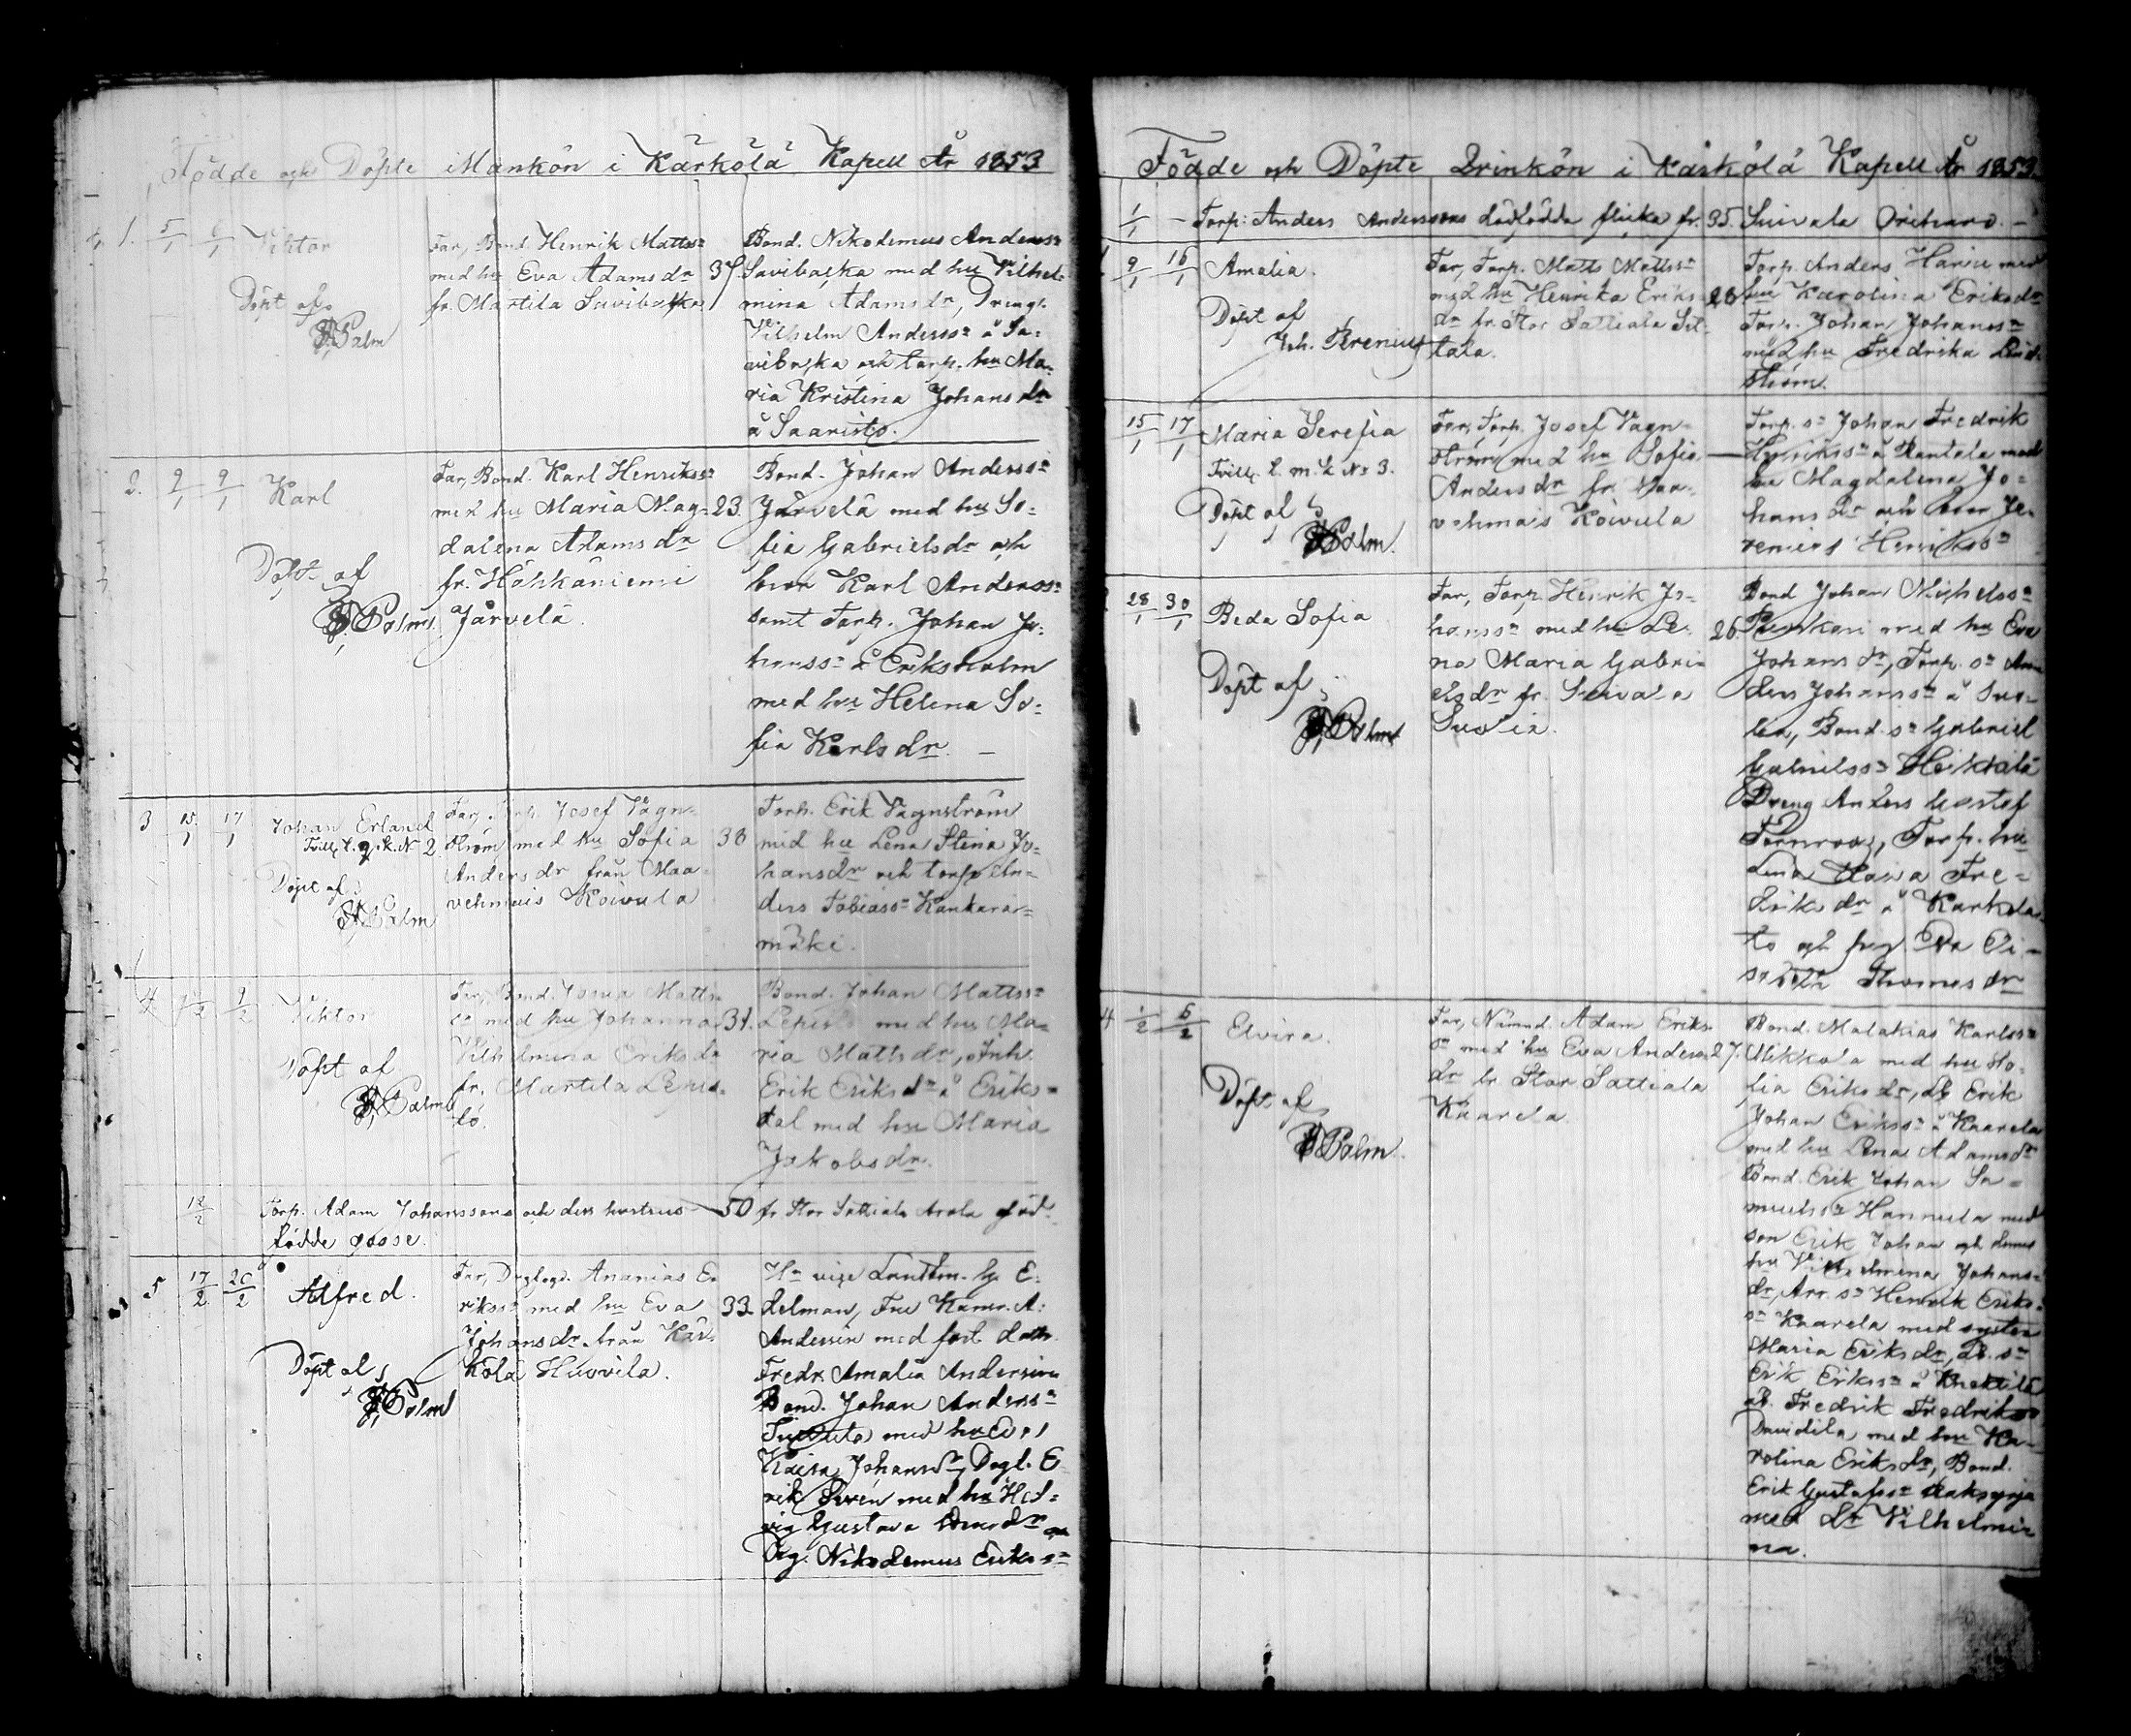 Födde och Döpte Mankön i Kärkölä Kapell År 1853
1. 5/1 6/1 Viktor
Döpt af
Palm
Far, Bond. Henrik Mattss:n
med hu Eva Adamsdr 37.
fr. Martila Savibacka
Bond. Nikodemus Anderss:n
Savibacka med hu Vilhel-
mina Adamsdr, Dreng.
Vilhelm Anderss:n å Sa-
vibacka och torp. hu Ma-
ria Kristina Johansdr
å Saaristo.
2. 9/1 9/1 Karl
Döpt af
Palm
Far, Bond. Karl Henrikss:n
med hu Maria Mag- 23.
dalena Adamsdr
fr. Hähkäniemi
Järvelä.
Bond. Johan Anderss:n
Järvelä med hu So-
fia Gabrielsdr och
bror Karl Anderss:n
samt Torp. Johan Jo-
hanss:n å Eriksholm
med hu Helena So-
fia Karlsdr. –
3 15/1 17/1 Johan Erland
Tvill. t. q. k. N 2
Döpt af
Palm
Far, Torp. Josef Vagn-
ström med hu Sofia 38
Andersdr från Maa-
vehmais Koivula
Torp. Erik Vagnström
med hu Lena Stina Jo-
hansdr och torp. An-
ders Tobiass:n Kankarar-
mäki.
4 9/2 Viktor
Döpt af
Palm
Far, Bond. Josua Matts-
s:n med hu Johanna 31.
Vilhelmina Eriksdr
fr. Martila Lepis-
tö.
Bond. Johan Mattss:n
Lepistö med hu Ma-
ria Mattsdr, Inh.
Erik Eriks å Eriks-
dal med hu Maria
Jakobsdr.
12/2 Torp. Adam Johanssons och dess hustrus 50 fr Stor Sattiala Arola död-
födde gosse.
5 17/2 20/2 Alfred.
Döpt af
Palm
Far, Ananias E-
rikss:n med hu Eva 33.
Johansdr från Kär-
kölä Huovila.
H:r vice Lantm. E-
delman, Fru A.
Andersin med fost. dottr.
Fredr. Amalia Andersin
Bond. Johan Anderss:n
med hu
Kaisa Johansdr, Dagl. E-
rik Sirén med hu Hed-
vig Gustava
Drg. Nikodemus Erikss:n
Födde och Döpte Qvinkön i Kärkölä Kapell År 1853.
1/1 – Torp: Anders Anderssons dödfödda flicka fr. 35. Suivala Oriharo. –
1 9/1 16/1 Amalia.
Döpt af
Joh. Brenius
Far, Torp. Matts Mattss:n
med hu Henrika Eriks- 28
dr fr. Stor Sattiala Sil-
tala.
Torp. Anders Harju med
hu Karolina Eriksdr
Torp. Johan Johanss:n
med hu Fredrika Lind-
ström.
15/1 17/1 Maria Serefia
Tvill. t. m. k. No 3.
Döpt af
Palm.
Far, Torp. Josef Vagn-
ström med hu Sofia –
Andersdr fr. Maa-
vehmais Koivula
Torp. s:n Johan Fredrik
Henrikss:n å Rantala med
hu Magdalena Jo-
hansdr och bror Je-
remias Henrikss:n
28/1 30/1 Beda Sofia
Döpt af
Palm
Far, Torp. Henrik Jo-
hanss:n med hu Le- 26.
na Maria Gabri-
elsdr fr. Suivala
Bond Johan Michelss:n
Penkari med hu Eva
Johansdr, Torp. s:n An-
ders Johanss:n å
Bond. s:n Gabriel
Gabrielss:n Heikkilä
Dreng Anders Gustaf
Törnroos, Torp. hu
Lena Maria Fre-
driksdr å Karkela-
to och Eli-
sabeth Thomasdr
4 1/2 6/2 Elvira.
Döpt af
Palm.
Far, Nämnd. Adam Eriks-
s:n med hu Eva Anders- 27.
dr fr Stor Sattiala
Kaarela
Bond. Malakias Karlss:n
Mikkola med hu So-
fia Eriksdr, db Erik
Johan Erikss:n å Kaarela
med hu Lena Adamsdr
Bond. Erik Johan Sa-
muelss:n Hannula med
son Erik Johan och dennes
hu Vilhelmina Johans-
dr, Arr. s:n Henrik Eriks-
s:n Kaarela med syster
Maria Eriksdr, db. s:n
Erik Erikss:n å Knaktila
db. Fredrik Fredrikss:n
Davidila med hu Ka-
rolina Eriksdr, Bond.
Erik Gustafss:n
med dr Vilhelmi-
na.